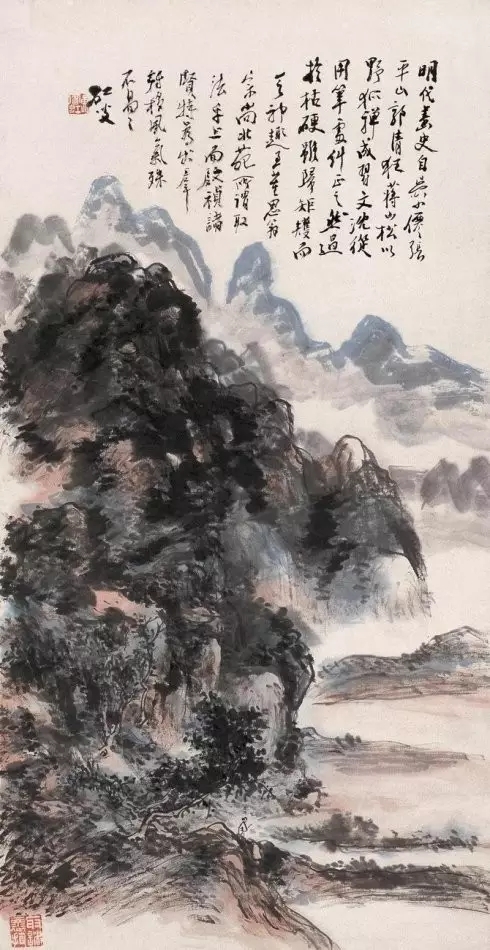 明代畫史自吳小僊張
平山郭清狂蔣三松以
野狐禪成習文沈從
用筆處糾正之然過
於枯硬雖歸矩矱而
乏神趣至董思翁
宗尚北苑所謂取
法乎上而啟禎諸
賢特為出羣
轉移風氣殊
不易易
虹叟